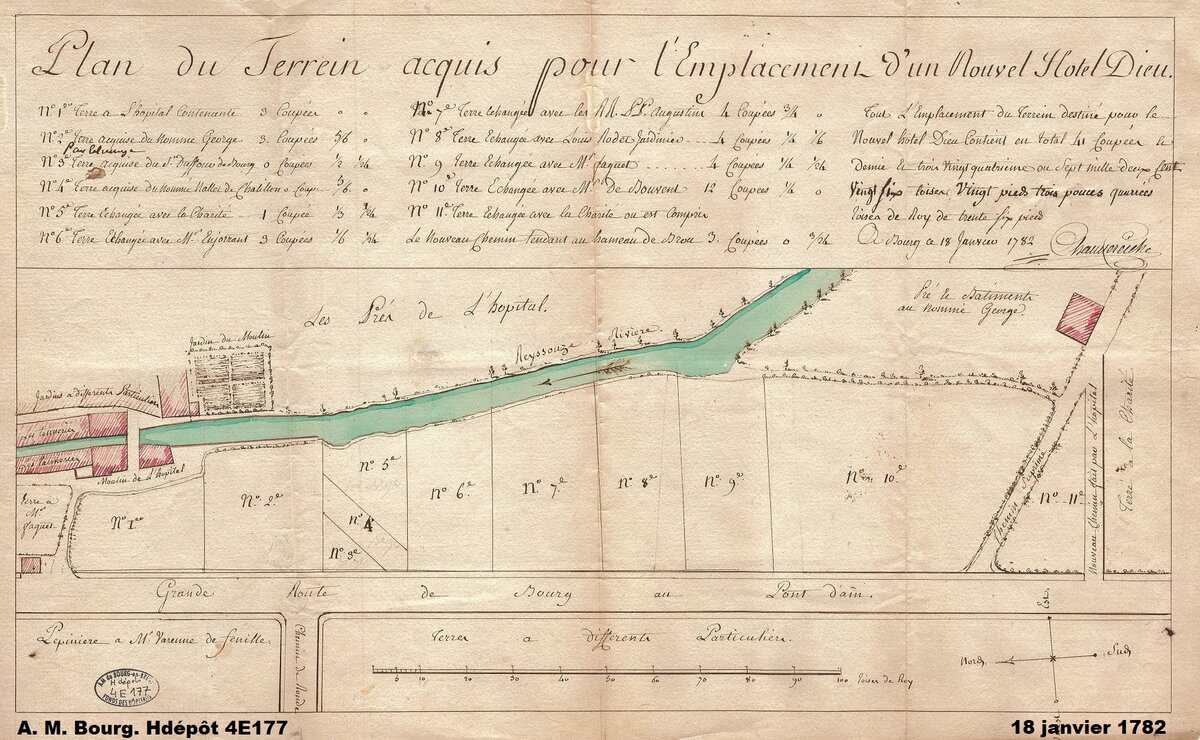 Plan du Terrein acquis pour l'Emplacement d'un Nouvel Hotel Dieu.
N.º 1.er Terre a L'hôpital Contenante 3 Coupées " "
N.º 2.e Terre acquise du Nommé George. 3. Coupées 5/6 "
par Echange
N.º 3.e Terre acquise du S.r Duffour de Bourg 0 Coupées
N.º 4.e Terre acquise du Nommé Nallet de Chatillon 0 Coup.
N.º 5.e Terre Echangée avec la Charité 1 Coupée 1/3
N.º 6.e Terre Echangée avec M.r Enjorrant 3 Coupées 1/6
N.º 7.e Terre Echangée avec les RR. PP. Augustins 4 Coupées 3/4 "
N.º 8.e Terre Echangée avec Louis Jardinier 4 Coupées 1/4 1/6
N.º 9 Terre Echangée avec M.r Jaquet 4 Coupées
N.º 10.e Terre Echangée avec M.r De Bouvent 12 Coupées 1/4 0
N.º 11.e Terre Echangée avec la Charité ou est Compris
Le Nouveau Chemin tendant au hameau de Brou 3. Coupées 0
Tout L'Emplacement du Terrein destiné pour le
Nouvel hôtel Dieu Contient en total 41 Coupées &
Demie & trois Vingt quatrieme ou Sept mille deux Cent
Vingt Six toises Vingt pieds trois pouces quarrées
toises de Roy de trente six pieds
A Bourg ce 18 Janvier 1782
Les Prés de L'hopital.
Reyssouze Riviere.
Pré & Batiments
au Nommé George.
Jardin du Moulin
Jardins a differents Particuliers
Les Tanneries
Les Tanneries
Moulin de L'hôpital
Terre a
M.r
Jaquet
N.º 1.er
N.º 2.e
N.º 3.e
N.º 4
N.º 5.e
N.º 6.e
N.º 7.e
N.º 8.e
N.º 9.e
N.º 10.e
N.º 11.e
Chemin Suprimé
Nouveau Chemin fait par L'hopital
Terre a la Charité
Grande Route de Bourg au Pont d'ain.
Pepiniere a M.r Varenne de fenille.
Chemin de Ronde
Terres a differents Particuliers.
5 10 20 30 40 50 60 70 80 90 100 toises de Roy
Est.
Nord
Sud
A.M. de BOURG-en-BRESSE
Hdépôt
4E177
FONDS DES HÔPITAUX
A. M. Bourg. Hdépôt 4E177
18 janvier 1782